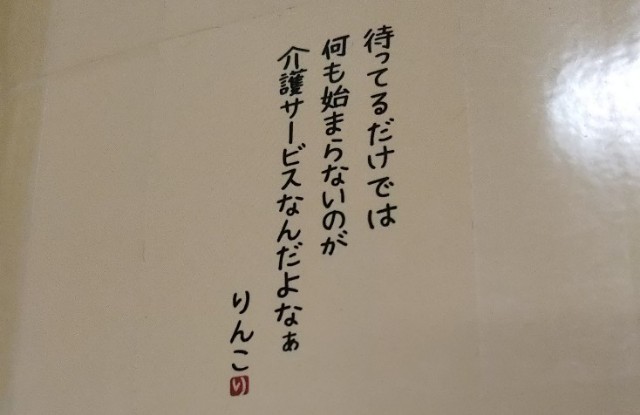 待ってるだけでは
何も始まらないのが
介護サービスなんだよなぁ
りんこ
り